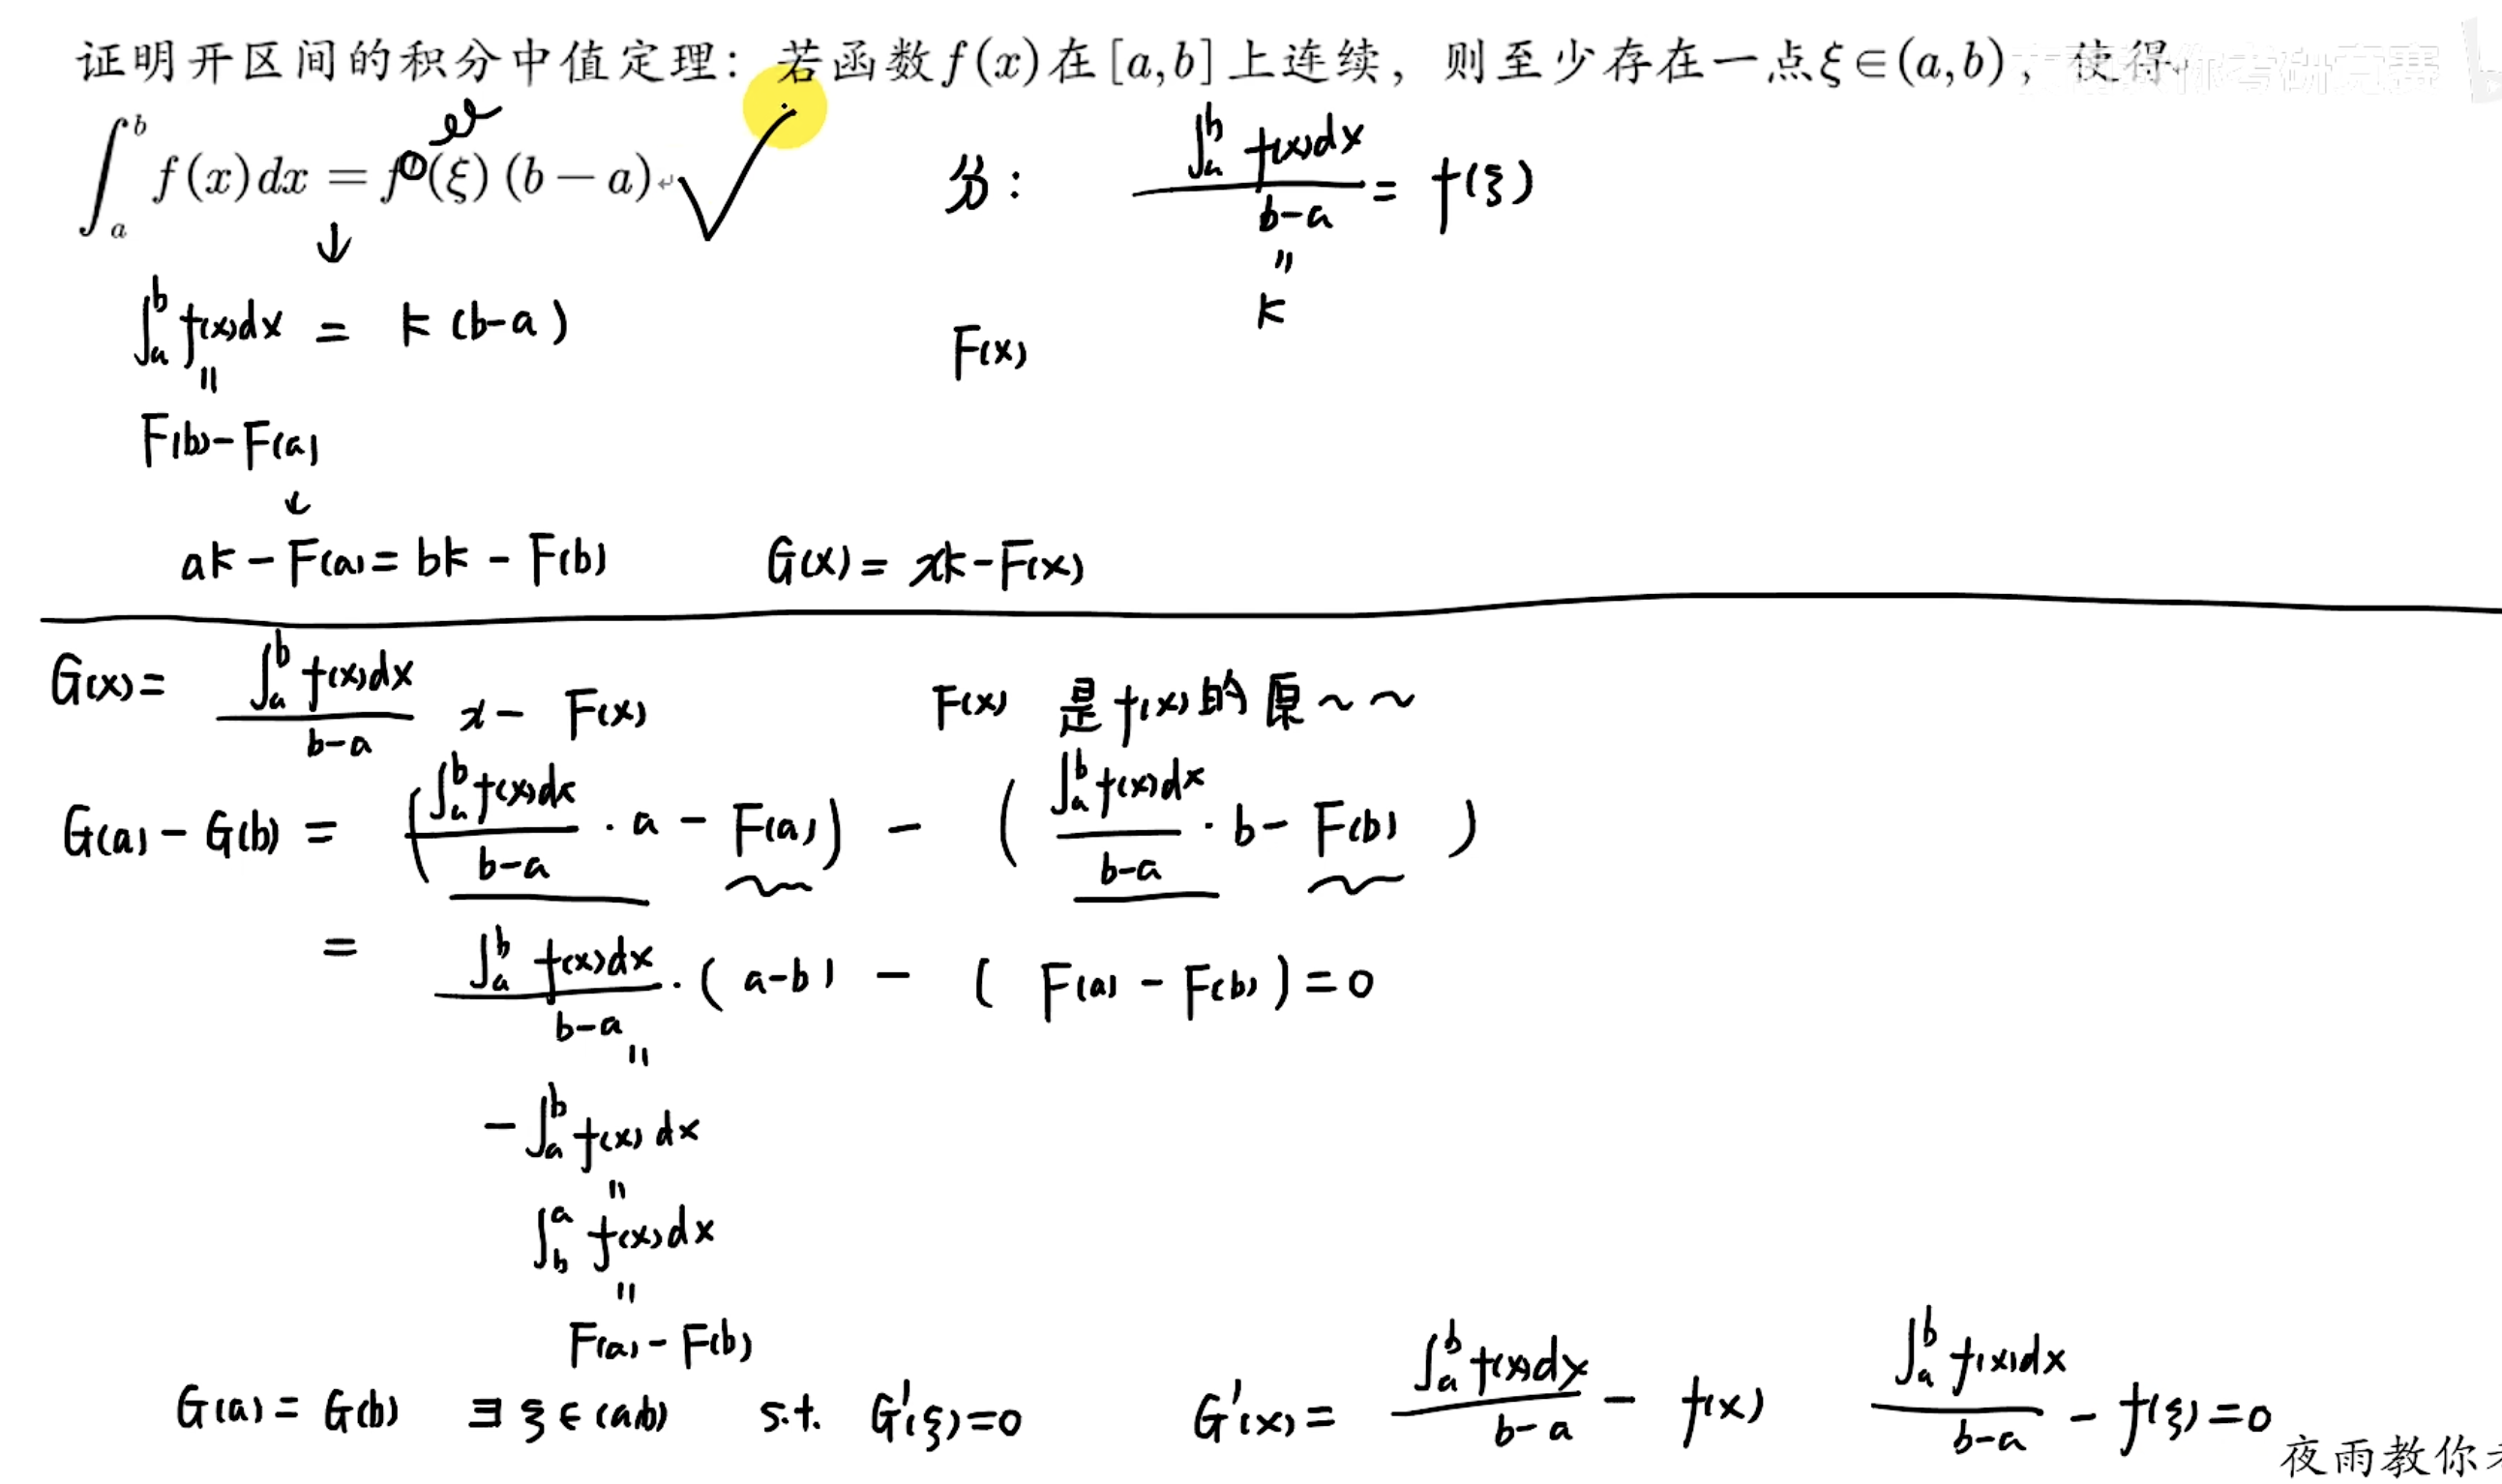 证明开区间的积分中值定理：若函数f(x)在[a,b]上连续，则至少存在一点ξ∈(a,b)，使得
∫_a^b f(x)dx = f(ξ)(b−a)
分： ∫_a^b f(x)dx / (b-a) = f(ξ)
=
k
∫_a^b f(x)dx = k(b-a)
F(x)
=
F(b)-F(a)
ak-F(a)=bk-F(b) G(x)=xk-F(x)
G(x)= ∫_a^b f(x)dx / (b-a) x - F(x) F(x) 是 f(x) 的原~~
G(a)-G(b) = (∫_a^b f(x)dx / (b-a) · a - F(a)) - (∫_a^b f(x)dx / (b-a) · b - F(b))
= ∫_a^b f(x)dx / (b-a) · (a-b) - (F(a)-F(b))=0
=
-∫_a^b f(x)dx
=
∫_b^a f(x)dx
=
F(a)-F(b)
G(a)=G(b) ∃ξ∈(a,b) s.t. G'(ξ)=0 G'(x)= ∫_a^b f(x)dx / (b-a) - f(x) ∫_a^b f(x)dx / (b-a) - f(ξ)=0
夜雨教你